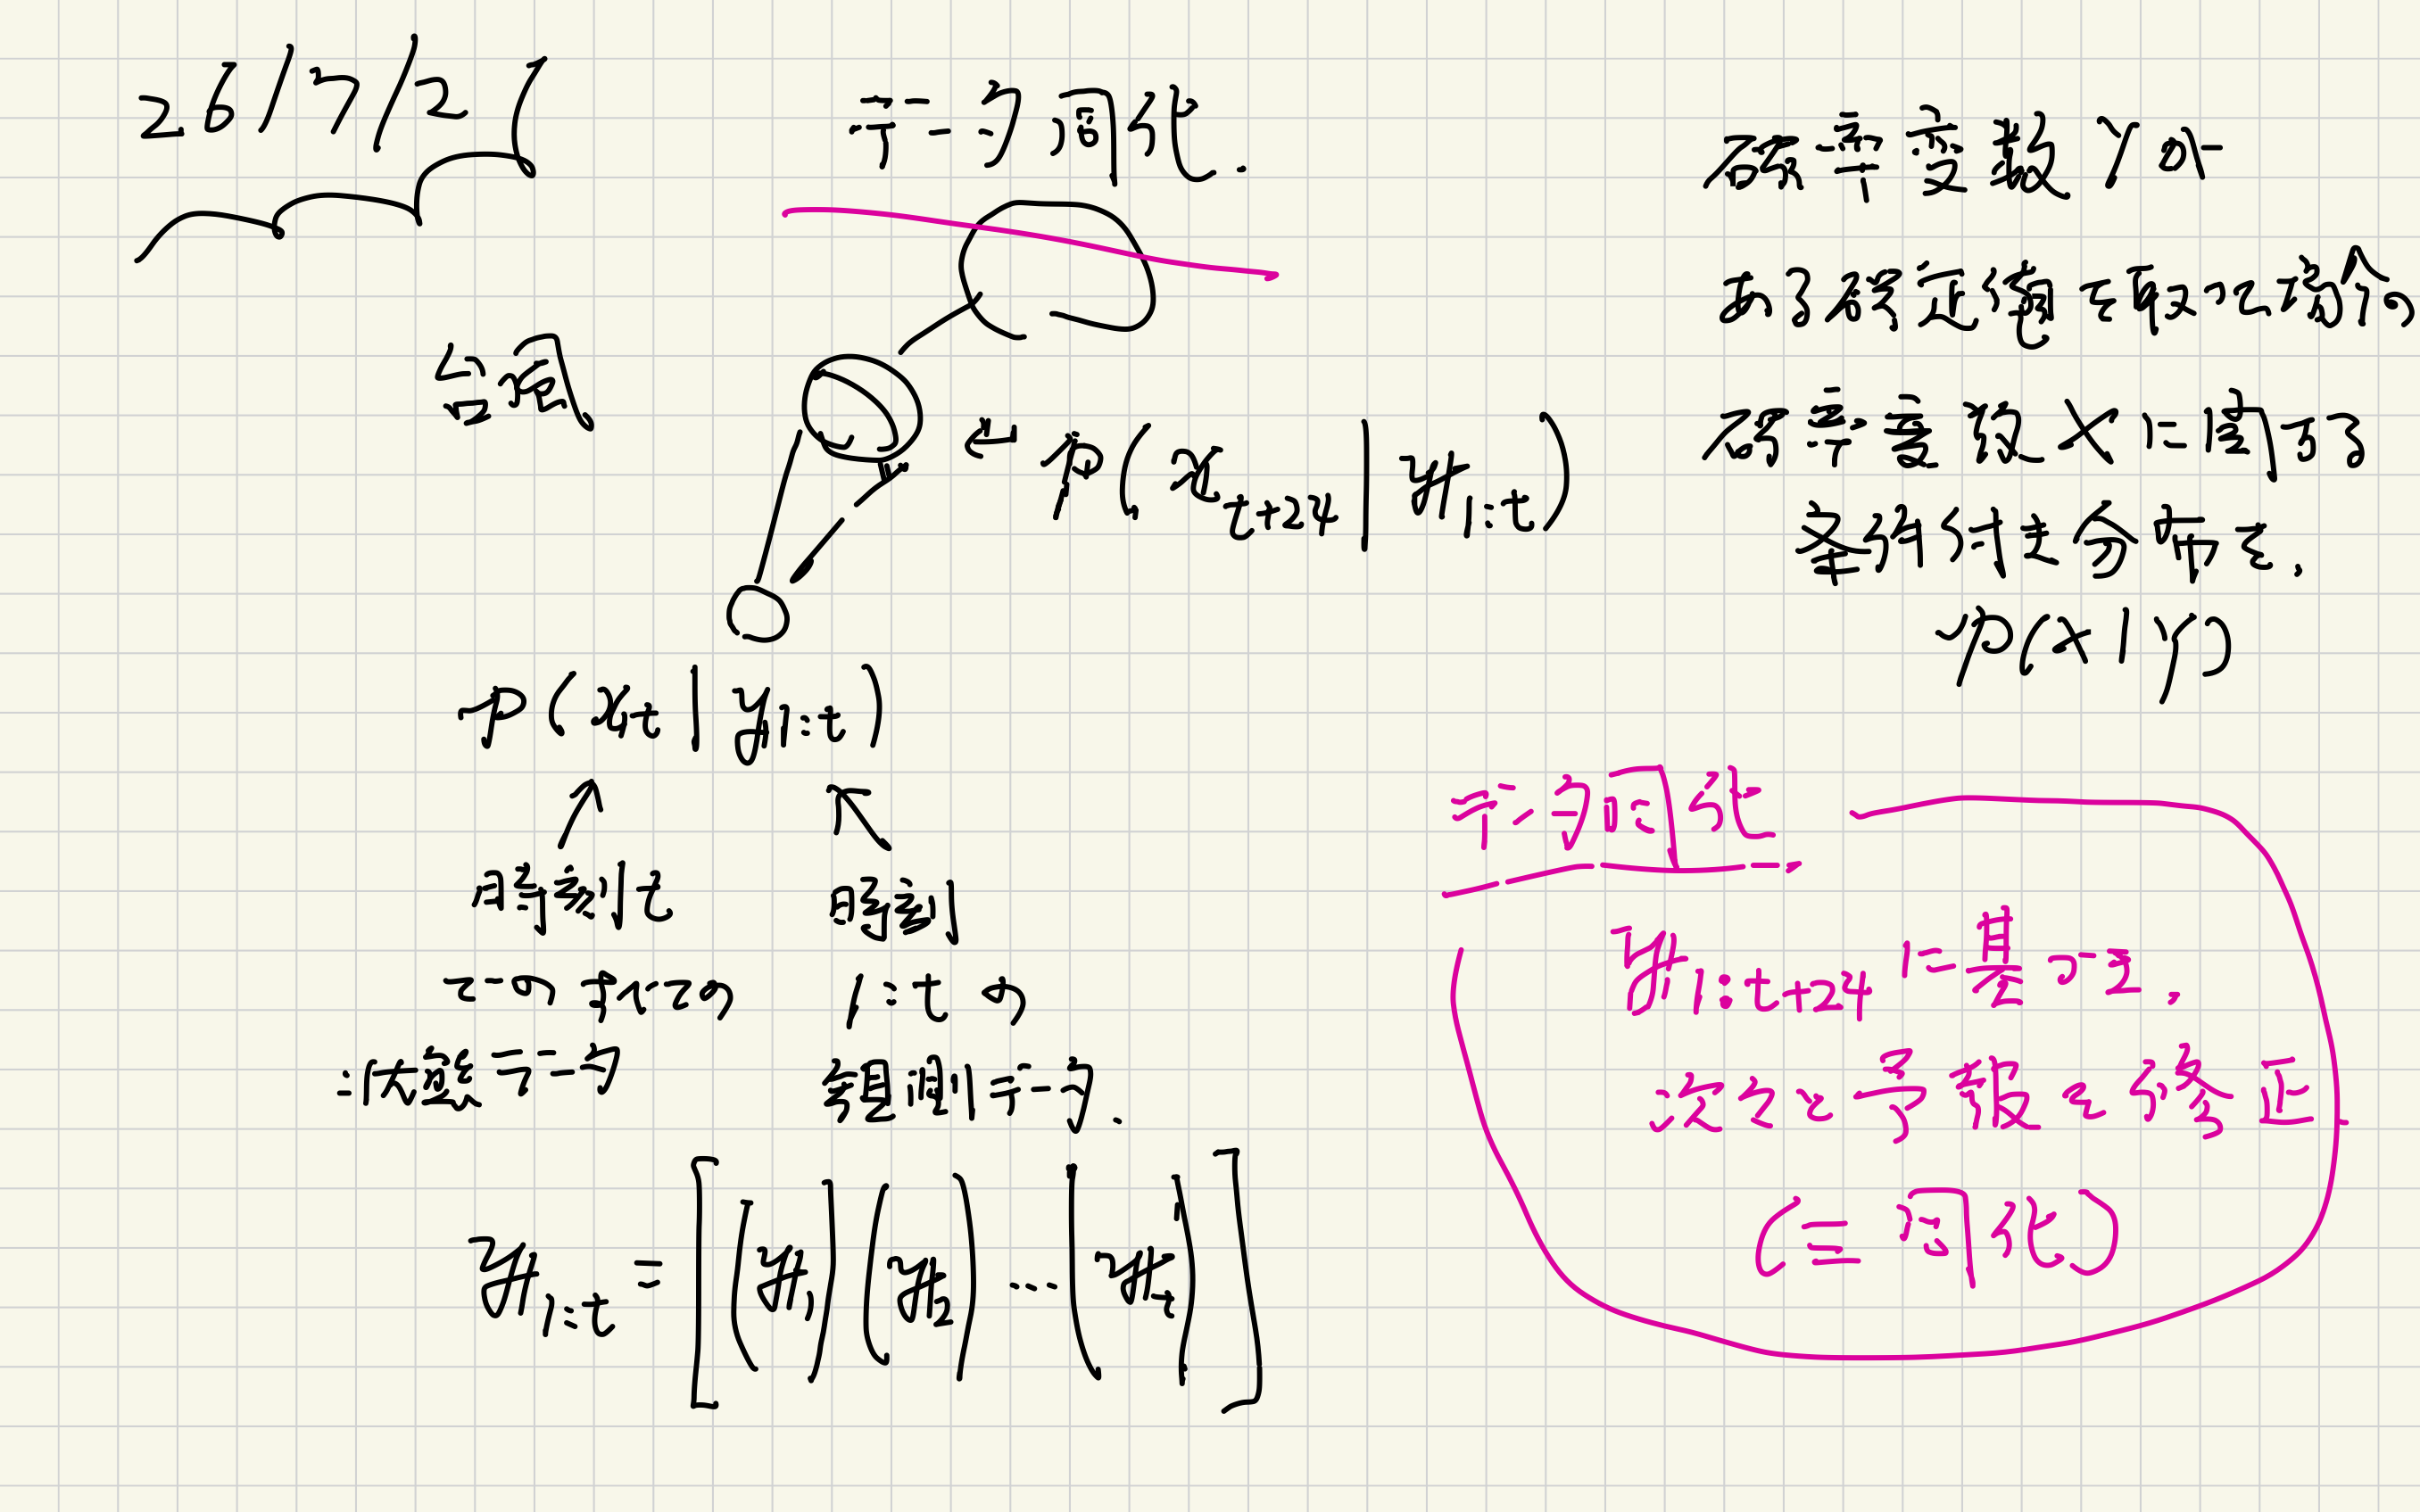 26/7/21
データ同化.
台風
p(x_{t+24} | y_{1:t})
p(x_t | y_{1:t})
時刻t
での すべての
状態データ
時刻
1:t の
観測データ.
y_{1:t} = [(y_1)(y_2)…(y_t)]
確率変数Yが
ある特定値を取った場合の
確率変数Xに関する
条件付き分布を.
p(X|Y)
データ同化
y_{1:t+24}に基づき.
次々と予報を修正
(≡ 同化)